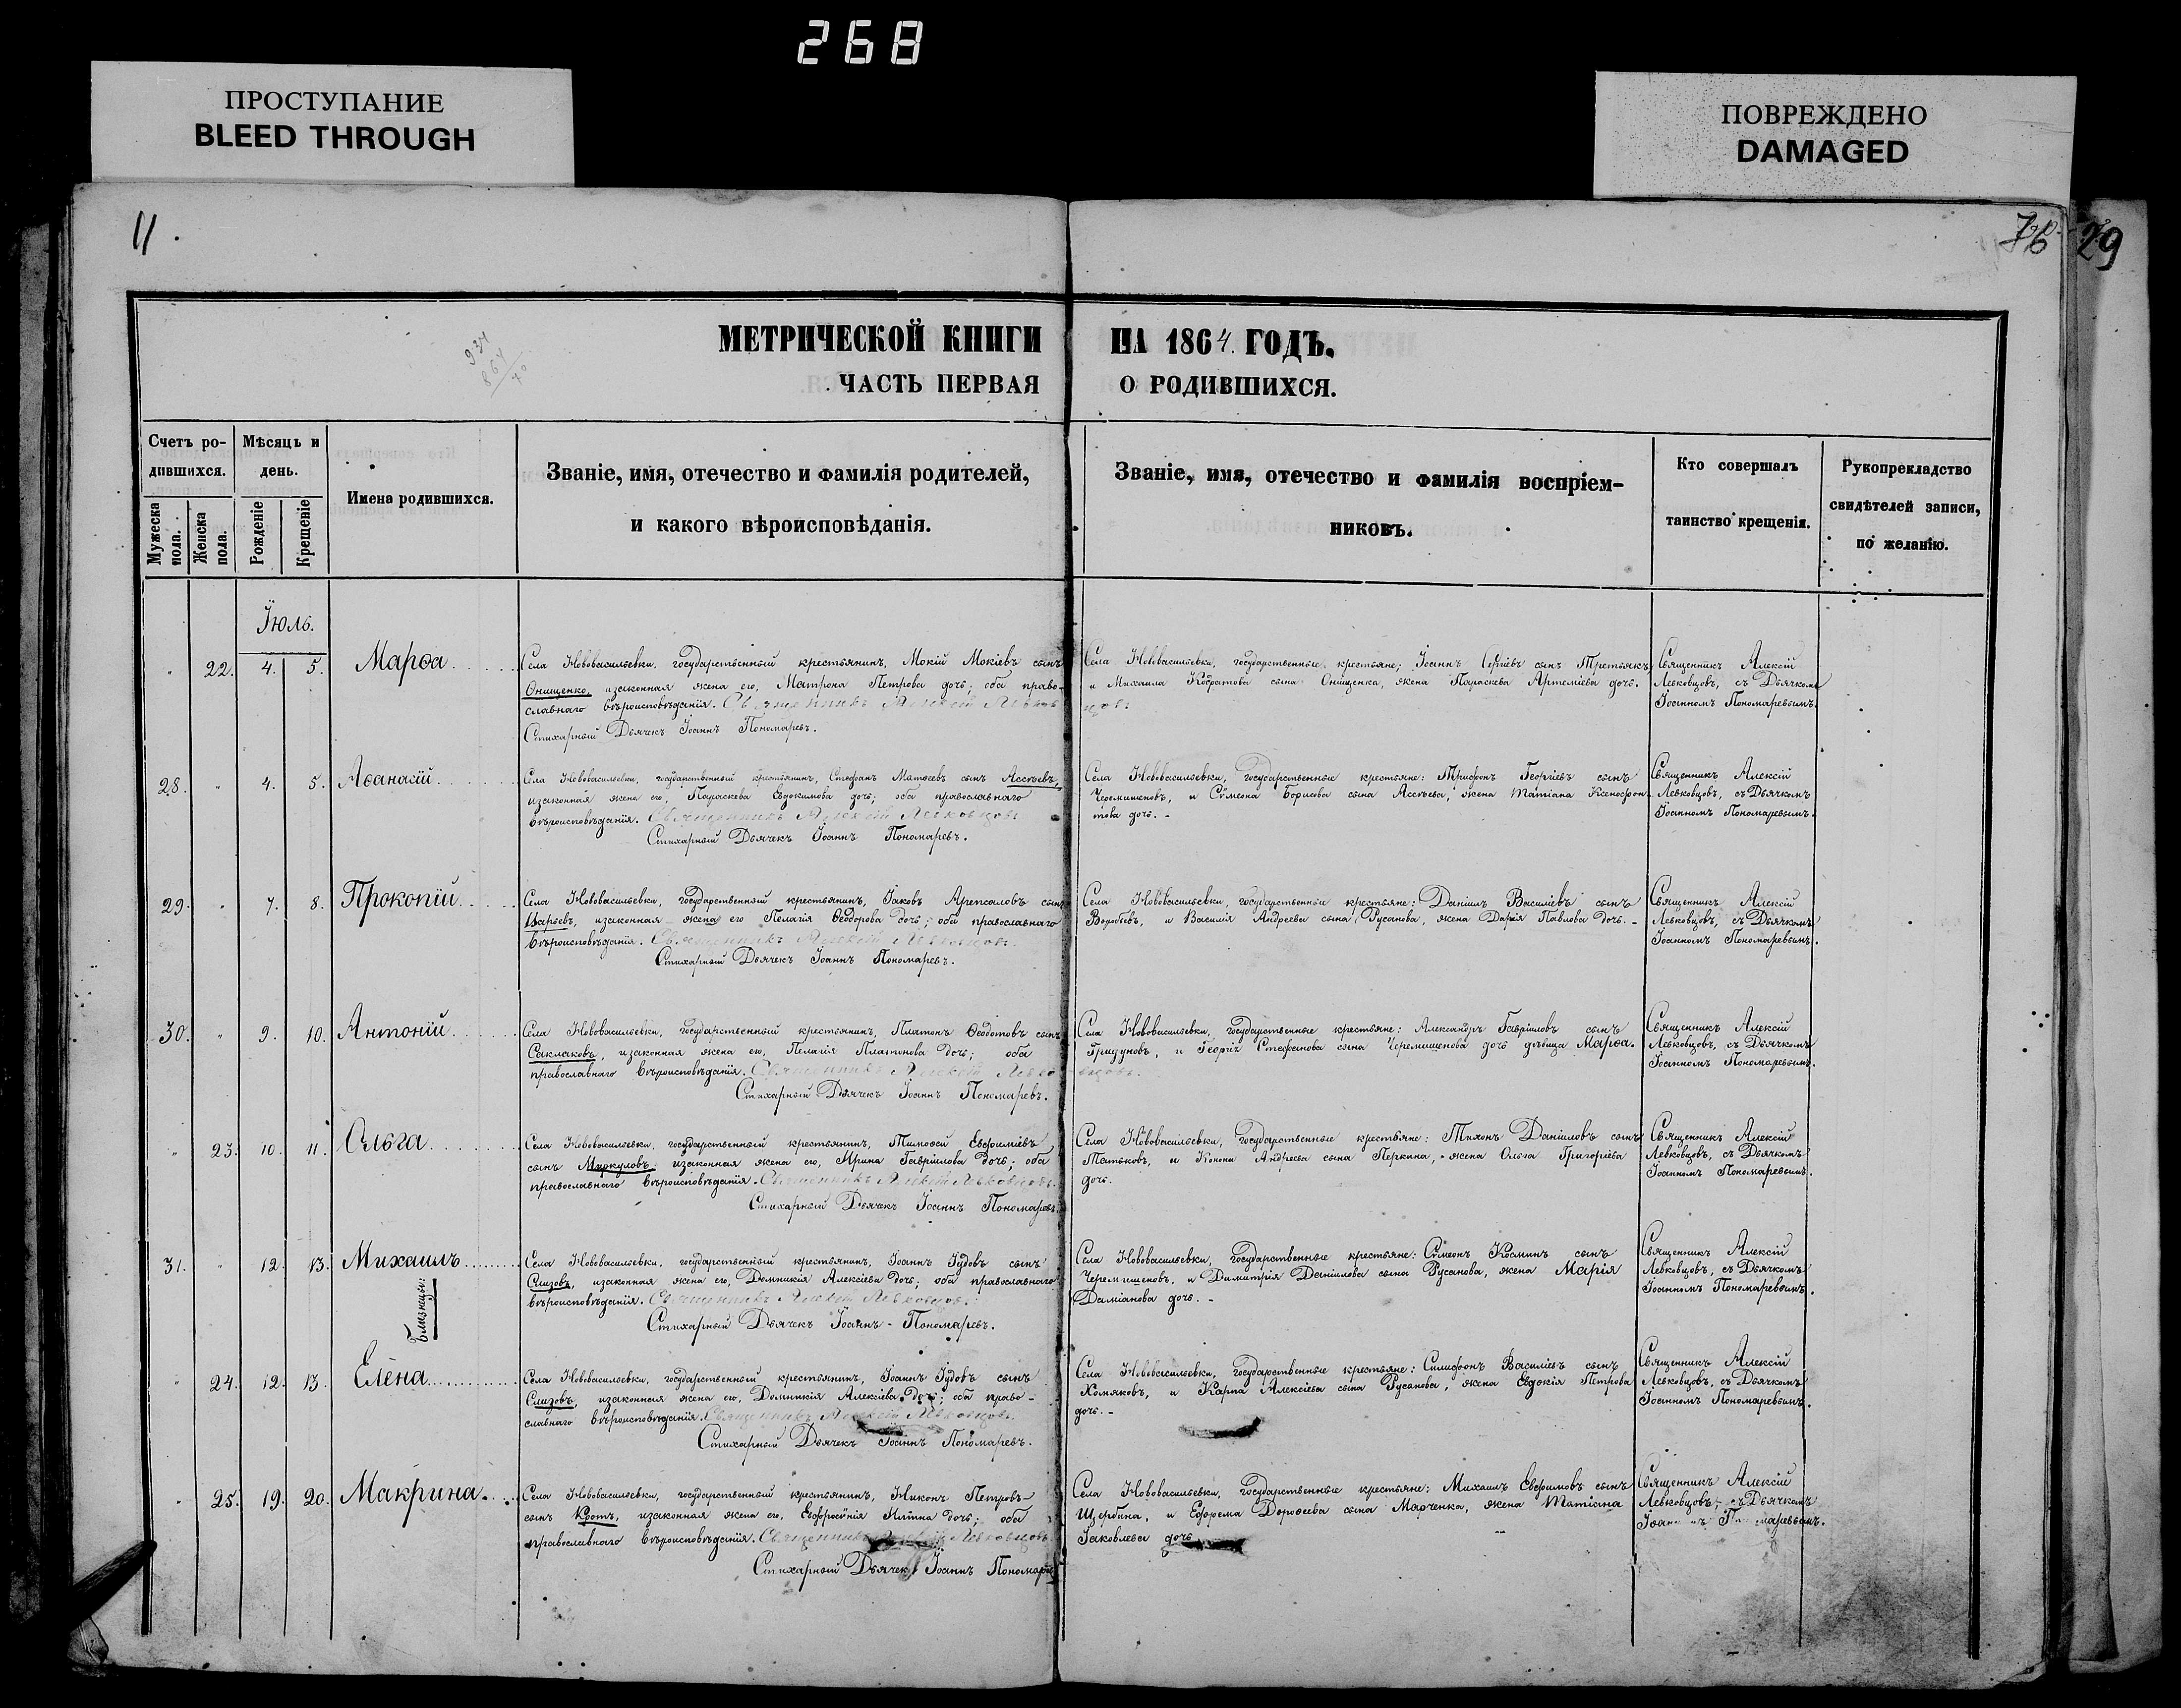 268
ПРОСТУПАНИЕ
BLEED THROUGH
ПОВРЕЖДЕНО
DAMAGED
11.
76
29
МЕТРИЧЕСКОЙ КНИГИ НА 1864. ГОДЪ.
ЧАСТЬ ПЕРВАЯ О РОДИВШИХСЯ.
Счетъ ро-
дившихся.
Мужеска пола.
Женска пола.
Мѣсяцъ и
день.
Рожденіе
Крещеніе
Имена родившихся.
Званіе, имя, отечество и фамилія родителей,
и какого вѣроисповѣданія.
Званіе, имя, отечество и фамилія воспріем-
никовъ.
Кто совершалъ
таинство крещенія.
Рукоприкладство
свидѣтелей записи,
по желанію.
Іюль.
" 22. 4. 5. Марѳа
Села Нововасильевки, государственный крестьянинъ, Мокій Мокіевъ сынъ
Онищенко, изаконная жена его, Матрона Петрова дочь; оба право-
славнаго вѣроисповѣданія. Священникъ Алексій Левковцовъ
Стихарный Дьячекъ Іоаннъ Пономаревъ.
Села Нововасильевки, государственные крестьяне; Іоаннъ Сергіевъ сынъ Третьякъ,
и Михаила Кодратова сына Онищенка, жена Параскева Артеміева дочь.
Священникъ Алексій
Левковцовъ, съ Дьячкомъ
Іоанномъ Пономаревымъ.
28. " 4. 5. Аѳанасій
Села Нововасильевки, государственный крестьянинъ, Стефанъ Матѳеевъ сынъ Ассѣевъ,
изаконная жена его, Параскева Евдокимова дочь; оба православнаго
вѣроисповѣданія. Священникъ Алексій Левковцовъ
Стихарный Дьячекъ Іоаннъ Пономаревъ.
Села Нововасильевки, государственные крестьяне: Трифонъ Георгіевъ сынъ
Черемишеновъ, и Сѵмеона Борисова сына Ассѣева, жена Татіана Ксенофон-
това дочь. -
Священникъ Алексій
Левковцовъ, съ Дьячкомъ
Іоанномъ Пономаревымъ.
29. " 7. 8. Прокопій
Села Нововасильевки, государственный крестьянинъ, Іаковъ сынъ
изаконная жена его Пелагія Ѳеодорова дочь; оба православнаго
вѣроисповѣданія. Священникъ Алексій Левковцовъ.
Стихарный Дьячекъ Іоаннъ Пономаревъ.
Села Нововасильевки, государственные крестьяне: Даніилъ Василіевъ сынъ
Воробьевъ, и Василія Андреева сына Русанова, жена Дарія Павлова дочь. -
Священникъ Алексій
Левковцовъ, съ Дьячкомъ
Іоанномъ Пономаревымъ.
30. " 9. 10. Антоній
Села Нововасильевки, государственный крестьянинъ, Платонъ Ѳеодотовъ сынъ
Саклаковъ, изаконная жена его, Пелагія Платонова дочь; оба
православнаго вѣроисповѣданія. Священникъ Алексій Левковцовъ.
Стихарный Дьячекъ Іоаннъ Пономаревъ.
Села Нововасильевки, государственные крестьяне: Александръ Гавріиловъ сынъ
Гридуновъ, и Георгія Стефанова сына Черемишенова дочь дѣвица Марѳа.
Священникъ Алексій
Левковцовъ, съ Дьячкомъ
Іоанномъ Пономаревымъ.
" 23. 10. 11. Ольга
Села Нововасильевки, государственный крестьянинъ, Тимоѳей Евфиміевъ
сынъ изаконная жена его, Ирина Гавріилова дочь; оба
православнаго вѣроисповѣданія. Священникъ Алексій Левковцовъ.
Стихарный Дьячекъ Іоаннъ Пономаревъ.
Села Нововасильевки, государственные крестьяне: Тихонъ Даніиловъ сынъ
Татьковъ, и Конона Андреева сына Перкина, жена Ольга Григоріева
дочь.
Священникъ Алексій
Левковцовъ, съ Дьячкомъ
Іоанномъ Пономаревымъ.
31. " 12. 13. Михаилъ
Близнецы:
Села Нововасильевки, государственный крестьянинъ, Іоаннъ Іудовъ сынъ
Слизовъ, изаконная жена его, Домникія Алексіева дочь; оба православнаго
вѣроисповѣданія. Священникъ Алексій Левковцовъ.
Стихарный Дьячекъ Іоаннъ Пономаревъ.
Села Нововасильевки, государственные крестьяне: Сѵмеонъ Косминъ сынъ
Черемишеновъ, и Димитрія Даніилова сына Русанова, жена Марія
Даміанова дочь. -
Священникъ Алексій
Левковцовъ, съ Дьячкомъ
Іоанномъ Пономаревымъ.
" 24. 12. 13. Елена
Села Нововасильевки, государственный крестьянинъ, Іоаннъ Іудовъ сынъ
Слизовъ, изаконная жена его, Домникія Алексіева дочь; оба право-
славнаго вѣроисповѣданія. Священникъ Алексій Левковцовъ.
Стихарный Дьячекъ Іоаннъ Пономаревъ.
Села Нововасильевки, государственные крестьяне: Василіевъ сынъ
Хомяковъ, и Карпа Алексіева сына Русанова, жена Евдокія Петрова
дочь. -
Священникъ Алексій
Левковцовъ, съ Дьячкомъ
Іоанномъ Пономаревымъ.
" 25. 19. 20. Макрина
Села Нововасильевки, государственный крестьянинъ, Никонъ Петровъ
сынъ Кротъ, изаконная жена его, Евфросинія Ильина дочь; оба
православнаго вѣроисповѣданія. Священникъ Алексій Левковцовъ
Стихарный Дьячекъ Іоаннъ Пономаревъ
Села Нововасильевки, государственные крестьяне: Михаилъ Евфимовъ сынъ
Щербина, и Ефрема Дороѳеева сына Марченка, жена Татіана
Іаковлева дочь
Священникъ Алексій
Левковцовъ, съ Дьячкомъ
Іоанномъ Пономаревымъ.